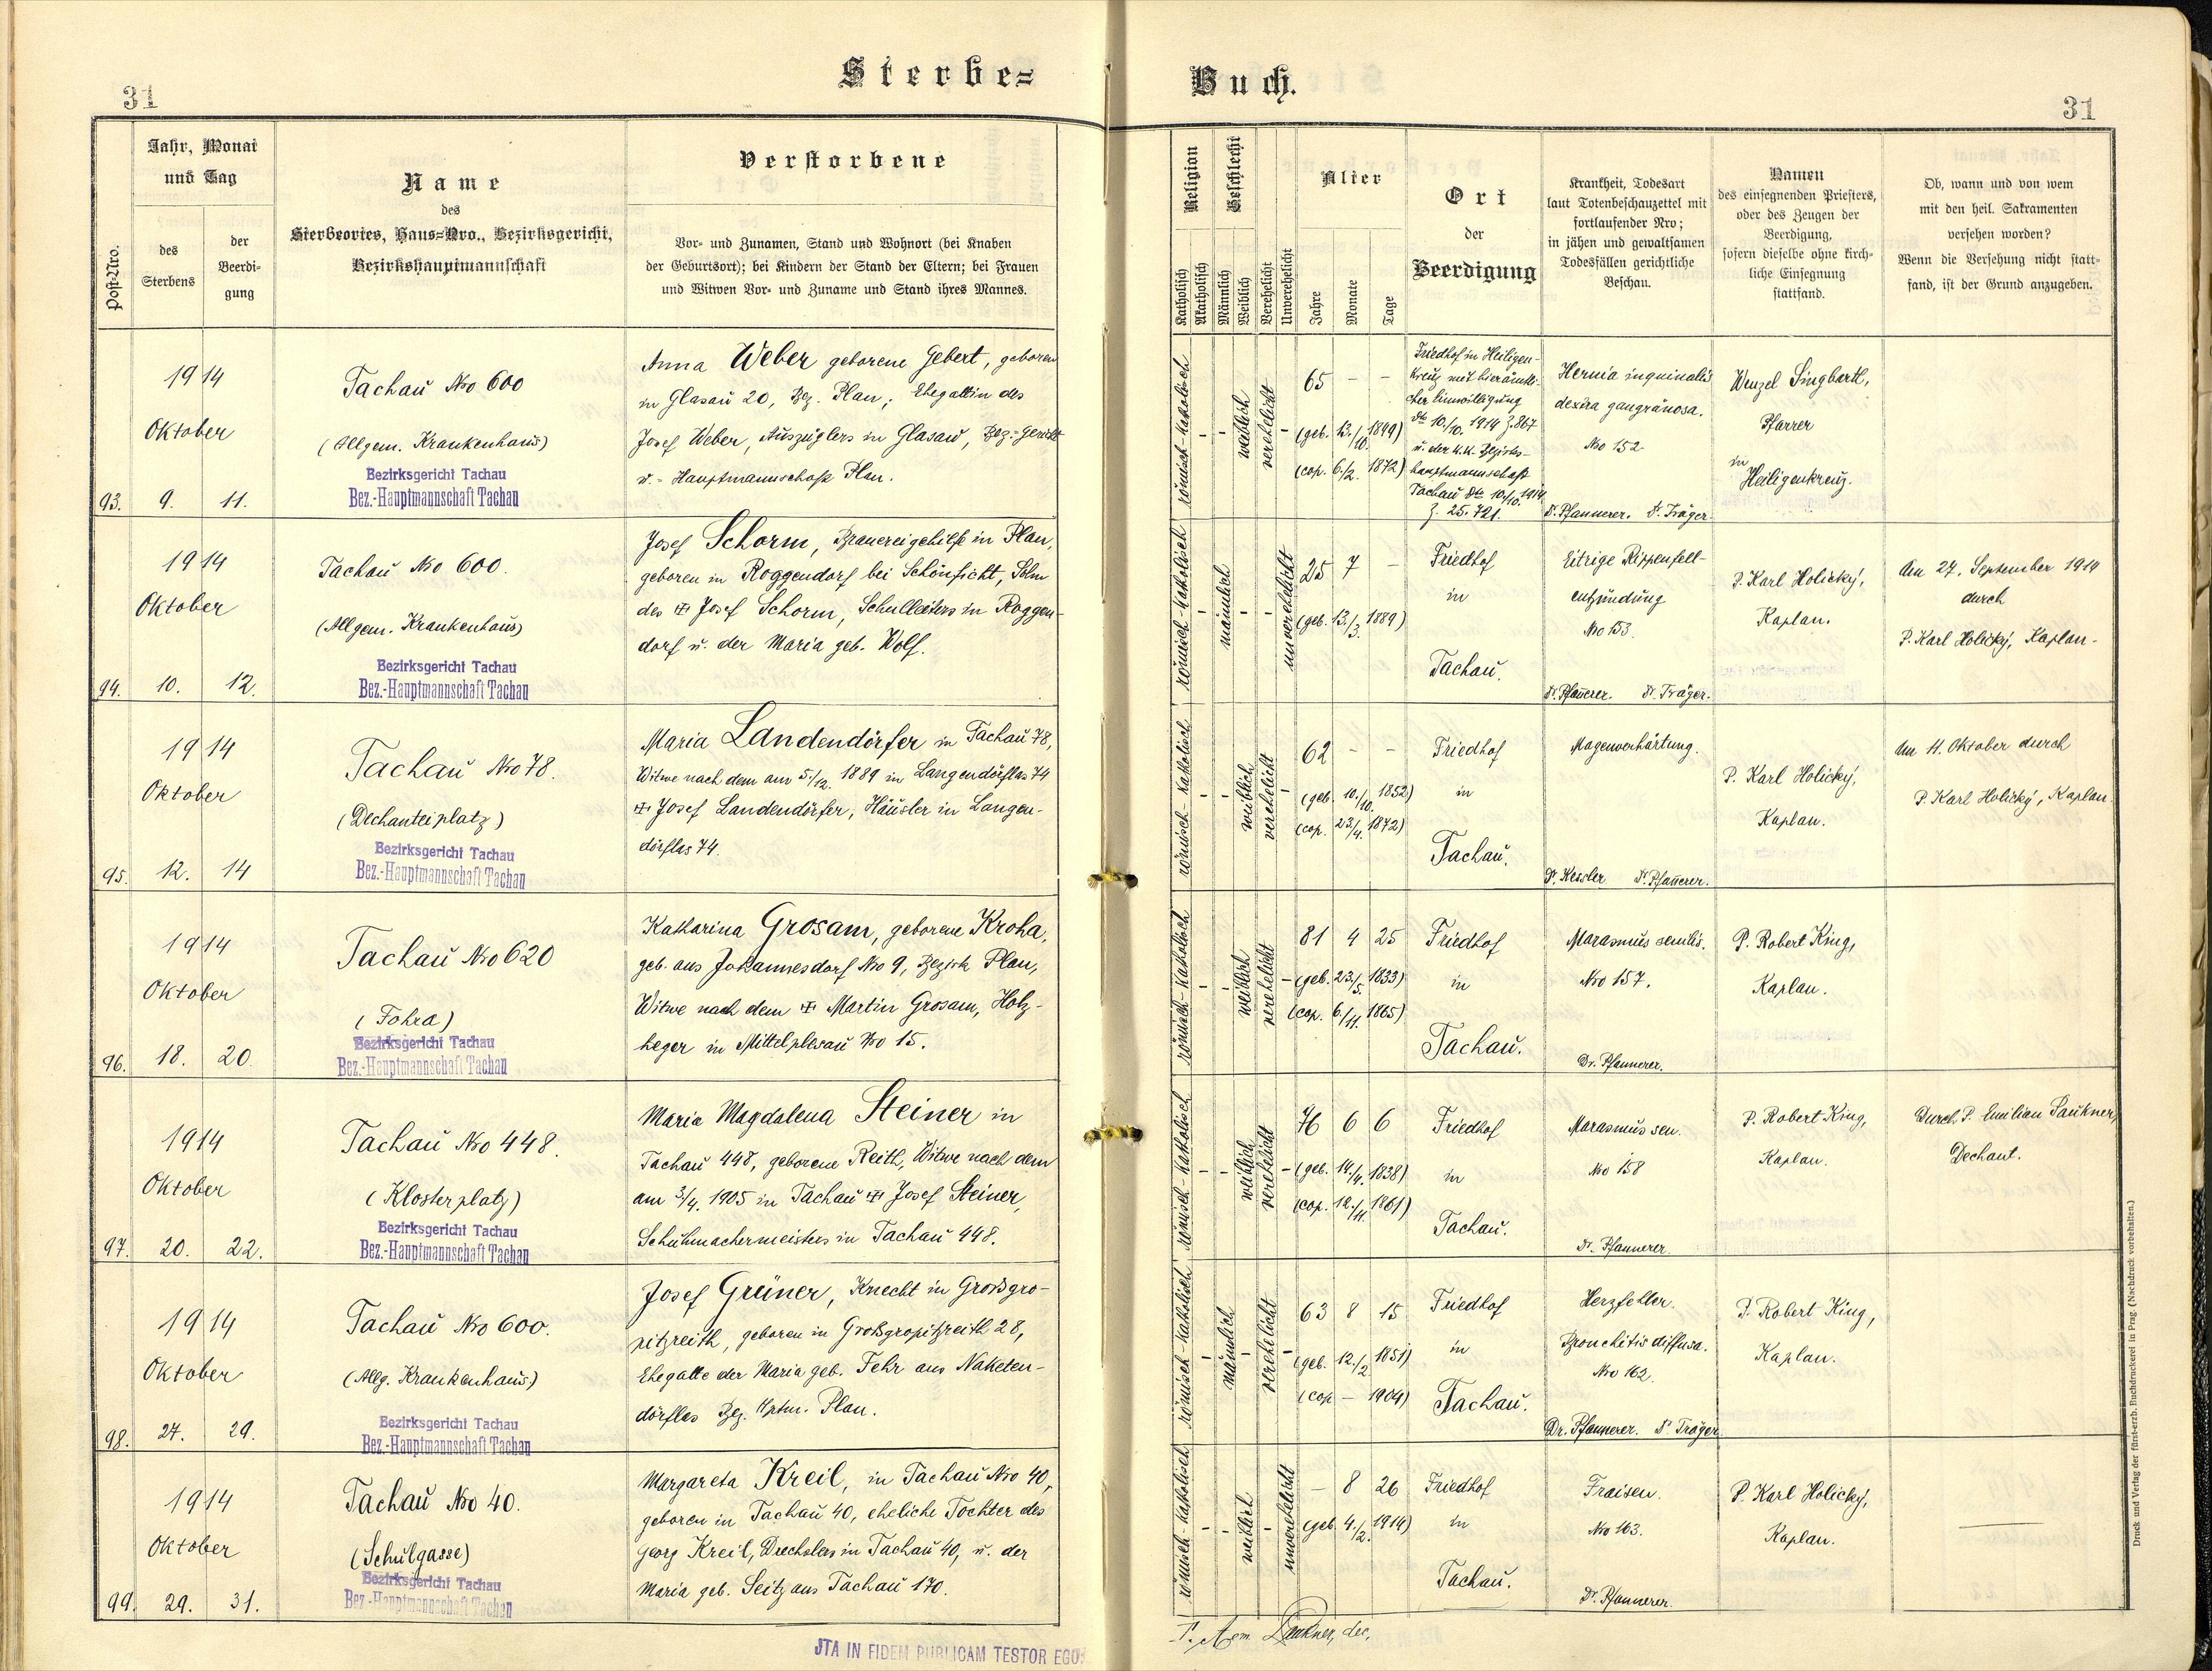 31
Sterbe=
Buch.
31
Post-Nro.
Jahr, Monat
und Tag
des
Sterbens
der
Beerdi-
gung
Name
des
Sterbeortes, Haus=Nro., Bezirksgericht,
Bezirkshauptmannschaft
Verstorbene
Vor- und Zunamen, Stand und Wohnort (bei Knaben
der Geburtsort); bei Kindern der Stand der Eltern; bei Frauen
und Witwen Vor- und Zuname und Stand ihres Mannes.
Religion
Katholisch
Akatholisch
Geschlecht
Männlich
Weiblich
Verehelicht
Unverehelicht
Alter
Jahre
Monate
Tage
Ort
der
Beerdigung
Krankheit, Todesart
laut Totenbeschauzettel mit
fortlaufender Nro;
in jähen und gewaltsamen
Todesfällen gerichtliche
Beschau.
Namen
des einsegnenden Priesters,
oder des Zeugen der
Beerdigung,
sofern dieselbe ohne kirch-
liche Einsegnung
stattfand.
Ob, wann und von wem
mit den heil. Sakramenten
versehen worden?
Wenn die Versehung nicht statt-
fand, ist der Grund anzugeben.
93.
1914
Oktober
9. 11.
Tachau Nro 600
(Allgem. Krankenhaus)
Bezirksgericht Tachau
Bez.-Hauptmannschaft Tachau
Anna Weber geborene Gebert, geboren
in Glasau 20, Bez. Plan; Ehegattin des
Josef Weber, Auszüglers in Glasau, Bez=Gericht
u. = Hauptmannschaft Plan.
römisch-katholisch
- -
weiblich
verehelicht
-
65 - -
(geb. 13./10. 1849)
(cop. 6./2. 1872)
Friedhof in Heiligen-
kreuz mit bierämtli-
cher Einwilligung
dto 10./10. 1914 Z. 867
u. der k.k. Bezirks-
hauptmannschaft
Tachau dto 10./10. 1914
Z. 25.721.
Hernia inguinalis
dextra gangränosa.
Nro 152
Dr. Pfannerer. Dr. Träger.
Wenzel Singhartl,
Pfarrer
in
Heiligenkreuz.
94.
1914
Oktober
10. 12.
Tachau Nro 600.
(Allgem. Krankenhaus)
Bezirksgericht Tachau
Bez.-Hauptmannschaft Tachau
Josef Schorm, Brauereigehilfe in Plan,
geboren in Roggendorf bei Schönficht, Sohn
des ✠ Josef Schorm, Schulleiters in Roggen-
dorf u. der Maria geb. Wolf.
römisch-katholisch
-
männlich
- -
unverehelicht
25 7 -
(geb. 13./3. 1889)
Friedhof
in
Tachau.
Eitrige Rippenfell-
entzündung
Nro 153.
Dr. Pfan̄erer. Dr. Träger.
P. Karl Holický,
Kaplan.
Am 27. September 1914
durch
P. Karl Holický, Kaplan-
95.
1914
Oktober
12. 14
Tachau Nro 78.
(Dechanteiplatz)
Bezirksgericht Tachau
Bez.-Hauptmannschaft Tachau
Maria Landendörfer in Tachau 78,
Witwe nach dem am 5./12. 1889 in Langendörflas 74
✠ Josef Landendörfer, Häusler in Langen-
dörflas 74.
römisch-katholisch
- -
weiblich
verehelicht
62 - -
(geb. 10./10. 1852)
(cop. 23./4. 1872)
Friedhof
in
Tachau.
Magenverhärtung.
Dr. Kessler Dr. Pfan̄erer.
P. Karl Holický,
Kaplan.
Am 11. Oktober durch
P. Karl Holický, Kaplan.
96.
1914
Oktober
18. 20.
Tachau Nro 620
(Fohra)
Bezirksgericht Tachau
Bez.-Hauptmannschaft Tachau
Katharina Grosam, geborene Kroha,
geb. aus Johannesdorf Nro 9, Bezirk Plan,
Witwe nach dem ✠ Martin Grosam, Holz-
heger in Mittelplesau Nro 15.
römisch-katholisch
- -
weiblich
verehelicht
-
81 4 25
(geb. 23./5. 1833)
(cop. 6./11. 1865)
Friedhof
in
Tachau.
Marasmus senilis.
Nro 157.
Dr. Pfannerer.
P. Robert King,
Kaplan.
97.
1914
Oktober
20. 22.
Tachau Nro 448.
(Klosterplatz)
Bezirksgericht Tachau
Bez.-Hauptmannschaft Tachau
Maria Magdalena Steiner in
Tachau 448, geborene Reith, Witwe nach dem
am 3/4. 1905 in Tachau ✠ Josef Steiner,
Schuhmachermeisters in Tachau 448.
römisch-katholisch
- -
weiblich
verehelicht
-
76 6 6
(geb. 14./4. 1838)
(cop. 12./11. 1861)
Friedhof
in
Tachau.
Marasmus sen.
Nro 158
Dr. Pfannerer.
P. Robert King,
Kaplan.
Durch P. Emilian Paukner,
Dechant.
98.
1914
Oktober
27. 29.
Tachau Nro 600.
(Allg. Krankenhaus)
Bezirksgericht Tachau
Bez.-Hauptmannschaft Tachau
Josef Grüner, Knecht in Grossgro-
pitzreith, geboren in Großgropitzreith 28,
Ehegatte der Maria geb. Fehr aus Naketen-
dörflas Bez. Hptm. Plan.
römisch-katholisch
-
männlich
-
verehelicht
-
63 8 15
(geb. 12./2 1851)
(cop - 1904)
Friedhof
in
Tachau.
Herzfehler.
Bronchitis diffusa.
Nro 162.
Dr. Pfannerer. Dr. Träger.
P. Robert King,
Kaplan.
99.
1914
Oktober
29. 31.
Tachau Nro 40.
(Schulgasse)
Bezirksgericht Tachau
Bez.-Hauptmannschaft Tachau
Margareta Kreil, in Tachau Nro 40,
geboren in Tachau 40, eheliche Tochter des
Georg Kreil, Drechslers in Tachau 40, u. der
Maria geb. Seitz aus Tachau 170.
römisch-katholisch
- -
weiblich
-
unverehelicht
- 8 26
(geb. 4./2. 1914)
Friedhof
in
Tachau.
Fraisen.
Nro 163.
Dr. Pfannerer.
P. Karl Holický,
Kaplan.
JTA IN FIDEM PUBLICAM TESTOR EGO:
Paukner, dec.
Druck und Verlag der fürst-erzb. Buchdruckerei in Prag. (Nachdruck vorbehalten.)